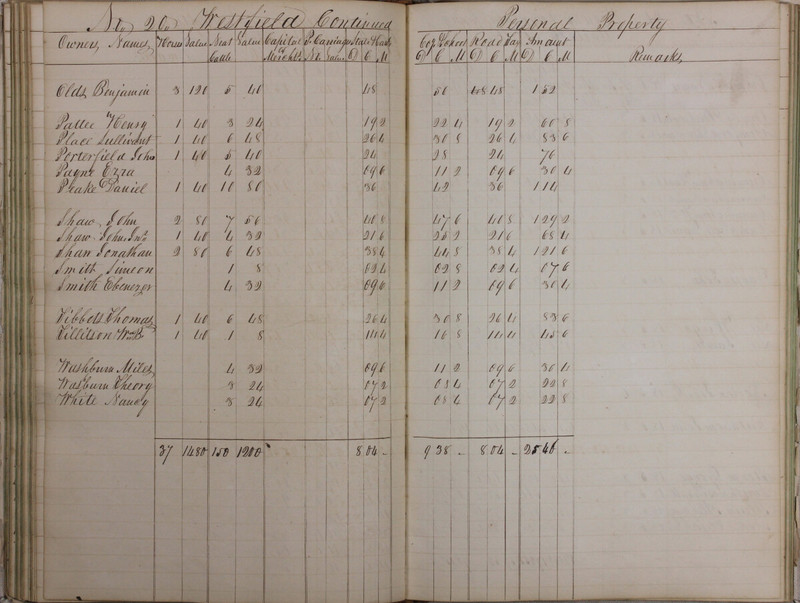 No. 20, Westfield Continued Personal Property
Owners, Names, Horses Value Neat Cattle Value Capital in Merchts. P. Carriages No. Value State & Canal D C M Co, & School D C M Road Tax D C M Amount D C M Remarks,
Olds, Benjamin 3 120 5 40 48 60 48 48 1 52
Pattee Henry 1 40 3 24 19 2 22 4 19 2 60 8
Place Sullivant 1 40 6 48 26 4 30 8 26 4 83 6
Porterfield John 1 40 5 40 24 28 24 76
Payne Ezra 4 32 09 6 11 2 09 6 30 4
Peake Daniel 1 40 10 80 36 42 36 1 14
Shaw, John 2 80 7 56 40 8 47 6 40 8 1 29 2
Shaw John Jnr. 1 40 4 32 21 6 25 2 21 6 68 4
Shaw Jonathan 2 80 6 48 38 4 44 8 38 4 1 21 6
Smith Simeon 1 8 02 4 02 8 02 4 07 6
Smith Ebenezer 4 32 09 6 11 2 09 6 30 4
Tibbots Thomas, 1 40 6 48 26 4 30 8 26 4 83 6
Tillitson Wm. B 1 40 1 8 14 4 16 8 14 4 45 6
Washburn Miles, 4 32 09 6 11 2 09 6 30 4
Washburn Theory 3 24 07 2 08 4 07 2 22 8
White Nancy 3 24 07 2 08 4 07 2 22 8
37 1480 150 1200 8 04 - 9 38 - 8 04 - 25 46 -